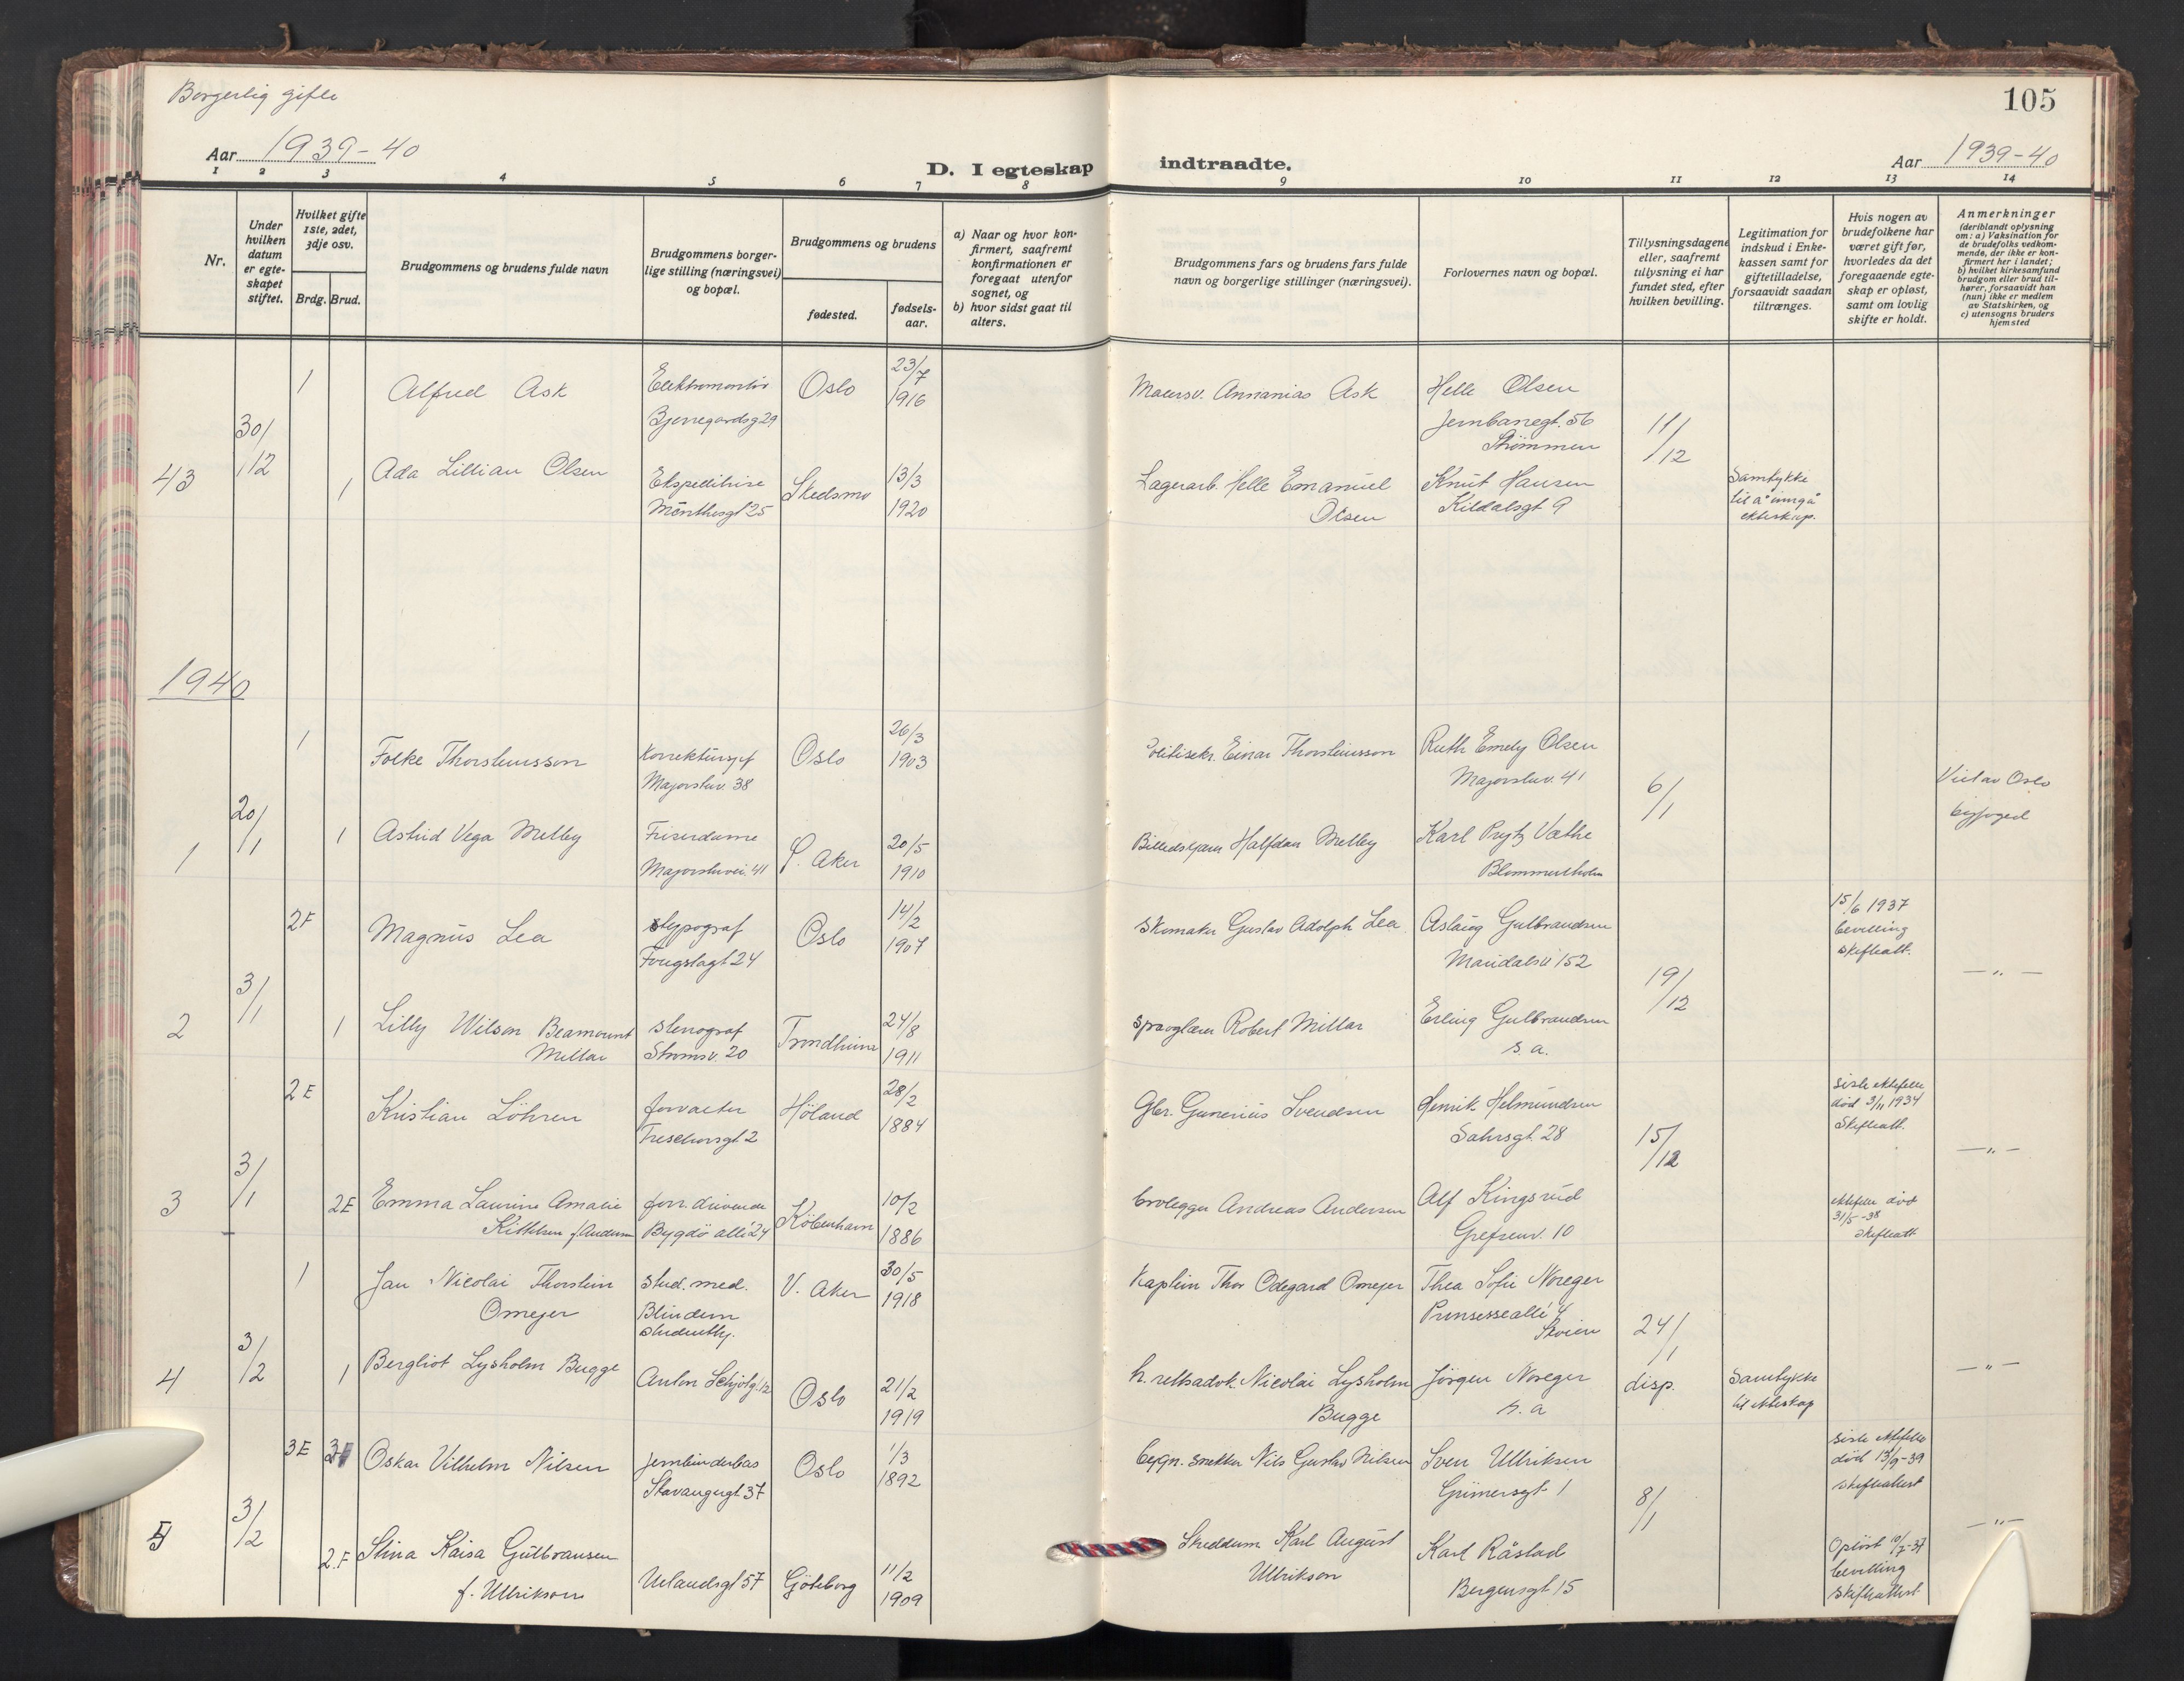 Borgerlig gifte
105
Aar 1939-40
D. I egteskap indtraadte.
Aar 1939-40
1 2 3 4 5 6 7 8 9 10 11 12 13 14
Nr.
Under hvilken datum er egteskapet stiftet.
Hvilket gifte 1ste, 2det, 3dje osv.
Brdg. Brud.
Brudgommens og brudens fulde navn
Brudgommens borgerlige stilling (næringsvei) og bopæl.
Brudgommens og brudens
fødested.
fødselsaar.
a) Naar og hvor konfirmert, saafremt konfirmationen er foregaat utenfor sognet, og
b) hvor sidst gaat til alters.
Brudgommens fars og brudens fars fulde navn og borgerlige stillinger (næringsvei).
Forlovernes navn og bopæl.
Tillysningsdagene eller, saafremt tillysning ei har fundet sted, efter hvilken bevilling.
Legitimation for indskud i Enkekassen samt for giftetilladelse, forsaavidt saadan tiltrænges.
Hvis nogen av brudefolkene har været gift før, hvorledes da det foregaaende egteskap er opløst, samt om lovlig skifte er holdt.
Anmerkninger (deriblandt oplysning om: a) Vaksination for de brudefolks vedkommende, der ikke er konfirmert her i landet; b) hvilket kirkesamfund brudgom eller brud tilhører, forsaavidt han (hun) ikke er medlem av Statskirken, og c) utensogns bruders hjemsted
1 Alfred Ask Elektromontör Oslo 23/7 1916 Ananias Ask Helle Olsen
Bjerregardsg 29 Jernbanegt. 56
Strömmen
43 30/12 11/12
1 Ada Lillian Olsen Ekspeditrise Skedsmo 13/3 1920 Lagerarb. Helle Emanuel Knut Hansen Samtykke
Münthesgt 25 Olsen Kildalsgt 9 til å inngå
ekteskap.
1940
1 Folke Thorsteinsson Korrektursjef Oslo 26/3 1903 Einar Thorsteinsson Ruth Emely Olsen
Majorstuv. 38 Majorstuv. 41 Viet av Oslo
byfoged
1 20/1 6/1
1 Astrid Vega Melby Friserdame Ö. Aker 20/5 1910 Halfdan Melby Karl Prytz Vathe
Majorstuvei. 41 Blommenholm
2F Magnus Lea typograf Oslo 14/2 1907 Skomaker Gustav Adolph Lea Aslaug Gulbrandsen 15/6 1937
Fougstagt 24 Maridalsv 152 bevilling
skifteatt.
2 3/1 19/12 — " —
1 Lilly Wilson Beamount stenograf Trondheim 24/8 1911 Språglærer Robert Millar Erling Gulbrandsen
Millar Strömsv. 20 s. a.
2E Kristian Löhren forvalter Höland 28/2 1884 Gbr. Gunerius Svendsen Henrik Helmundsen siste ektefelle
Treschowsgt 2 Sahrsgt. 28 död 3/11 1934
Skifteatt.
3 3/1 15/12 — " —
2E Emma Laurine Amalie forr. drivende Köbenhavn 10/2 1886 brolegger Andreas Andersen Alf Kingsrud ektefelle död
Kittelsen f. Andersen Bygdö allé 24 Grefsenv. 10 31/5-38
skifteatt
1 Jan Nicolai Thorstein stud. med. V. Aker 30/5 1918 Kaptein Thor Odegard Omejer Thea Sofie Noreger
Omejer Blindern Prinsessealle 4
studentby. Skoien
4 3/2 24/1 disp. — " —
1 Bergliot Lysholm Bugge Anton Schjötsg. 12 Oslo 21/2 1919 h. rettsadvok. Nicolai Lysholm Jörgen Noreger Samtykke
Bugge s. a til ekteskap
3E Oskar Vilhelm Nilsen jernbinderbas Oslo 1/3 1892 bygn. snekker Nils Gustav Nilsen Sven Ullriksen siste ektefelle
Stavangergt. 37 Grimersgt 1 död 13/9-39
skifteattest
5 3/2 8/1 — " —
2.F Stina Kaisa Gulbransen Uelandsgt 57 Göteborg 11/2 1909 Karl August Karl Råstad Oplöst 10/7-37
f. Ullrikson Ullrikson Bergensgt 15 bevilling
Skifteattest